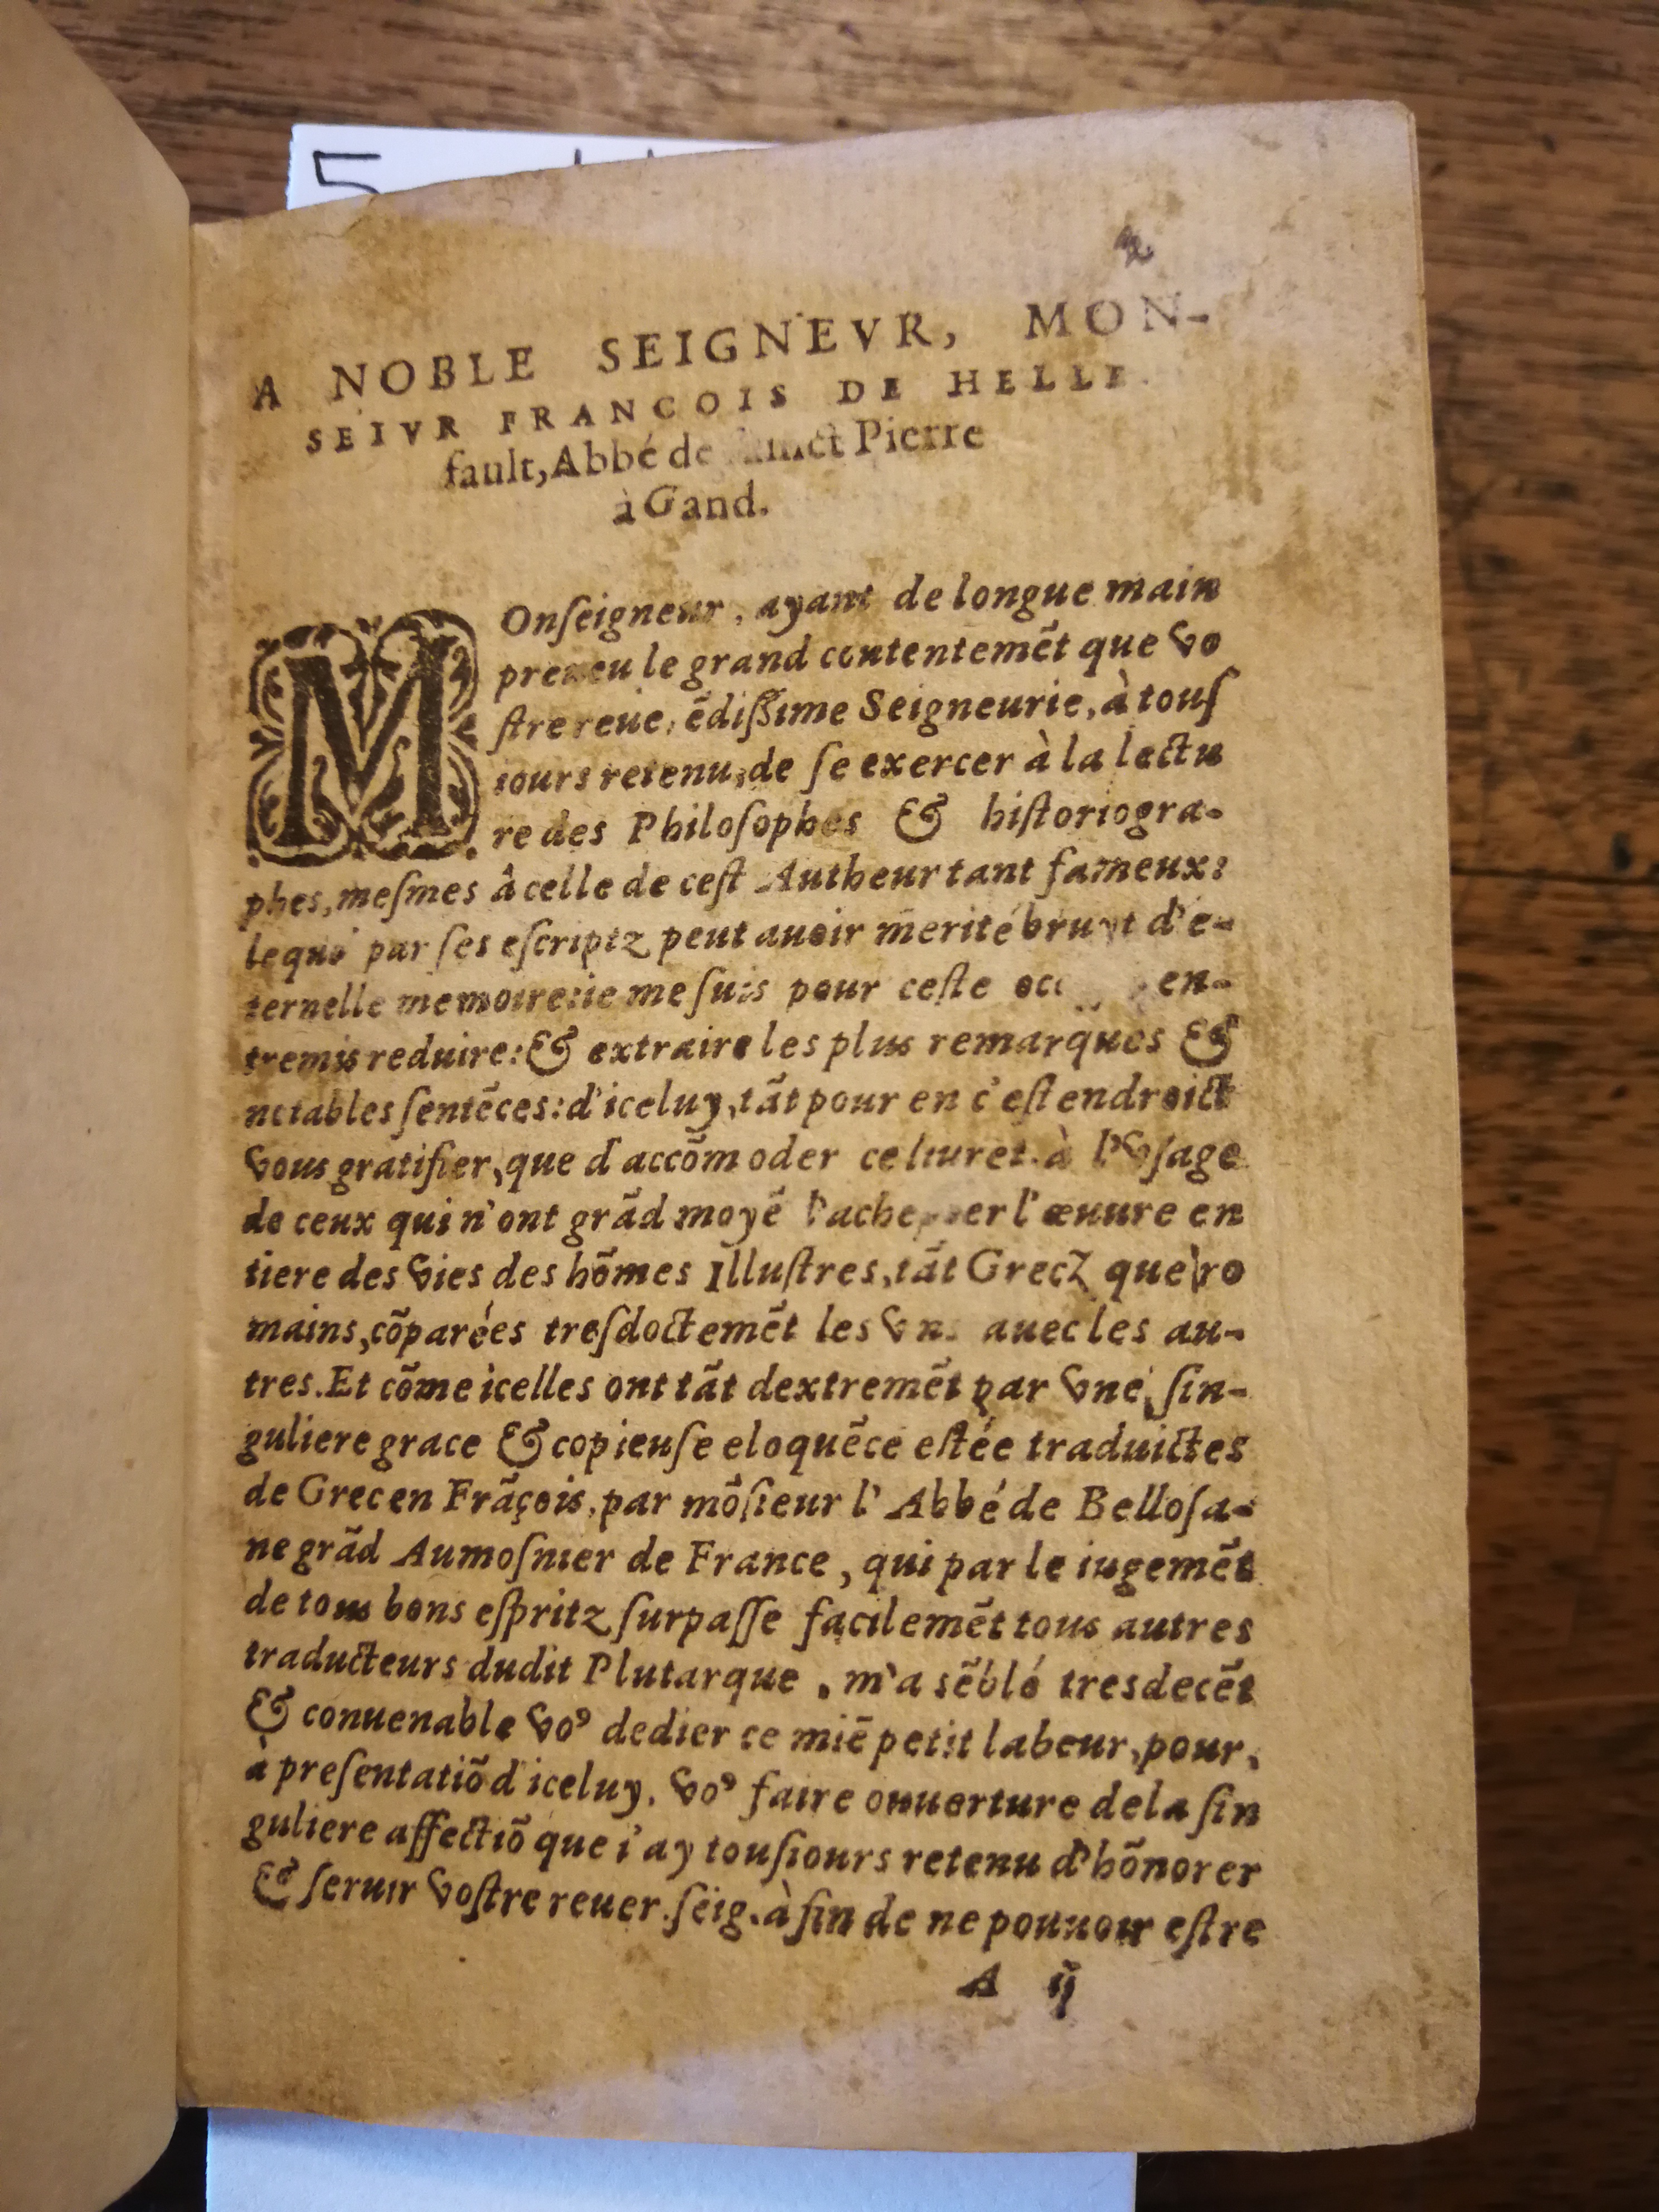 5
A NOBLE SEIGNEVR, MON-
SEIVR FRANCOIS DE HELLE
fault, Abbé de Pierre
à Gand.
MOnſeigneur, ayant de longue main
preueu le grand contentemẽt que vo
ſtre reue, ẽdiſſime Seigneurie, à touſ
iours retenu, de ſe exercer à la lectu
re des Philoſophes & hiſtoriogra-
phes, meſmes â celle de ceſt Autheur tant fameux:
lequel par ſes eſcriptz peut auoir merité bruyt d'e-
ternelle memoire: ie me ſuis pour ceſte en-
tremis reduire: & extraire les plus remarques &
notables ſentẽces: d'iceluy, tãt pour en c'eſt endroict
vous gratifier, que d'accõmoder ce liuret à l'vſage
de ceux qui n'ont grãd moyẽ l'œuure en
tiere des vies des hõmes Illuſtres, tãt Grecz que ro
mains, cõparées treſdoctemẽt les vns auec les au-
tres. Et cõme icelles ont tãt dextremẽt par vne ſin-
guliere grace & copieuſe eloquẽce eſtée traduictes
de Grec en Frãçois, par mõſieur l'Abbé de Belloſa-
ne grãd Aumoſnier de France, qui par le iugemẽt
de tous bons eſpritz ſurpaſſe facilemẽt tous autres
traducteurs dudit Plutarque, m'a sẽblé tresdecẽt
& conuenable voꝰ dedier ce miẽ petit labeur, pour,
à preſentatiõ d'iceluy, voꝰ faire ouuerture de la ſin
guliere affectiõ que i'ay touſiours retenu d'hõnorer
& ſeruir voſtre reuer. ſeig. à fin de ne pouuoir eſtre
A ij